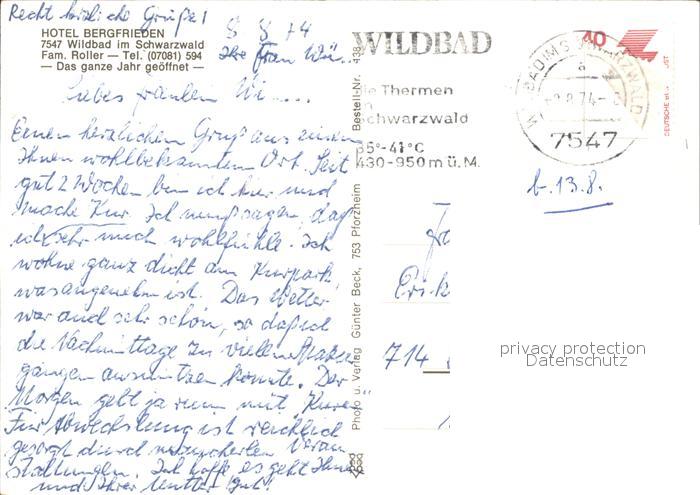 Recht herzliche Grüße!
8 8 74
Ihre Frau Wü...
HOTEL BERGFRIEDEN
7547 Wildbad im Schwarzwald
Fam. Roller — Tel. (07081) 594
— Das ganze Jahr geöffnet —
Liebes Fräulein Wi....
Einen herzlichen Gruß aus einem
Ihnen wohlbekannten Ort. Seit
gut 2 Wochen bin ich hier und
mache Kur. Ich muß sagen, daß
ich sehr mich wohlfühle. Ich
wohne ganz dicht am Kurpark,
was angenehm ist. Das Wetter
war auch sehr schön, so daß ich
die Nachmittage zu vielen Spazier
gängen ausnützen konnte. Der
Morgen geht ja nun mit "Kuren"
Für Abwechslung ist reichlich
gesorgt durch Veran
staltungen. Ich hoffe es geht Ihnen
und Ihrer Mutter gut!
Photo u. Verlag Günter Beck, 753 Pforzheim Bestell-Nr. 438
WILDBAD
die Thermen
Schwarzwald
35°-41°C
430-950 m ü. M.
WILDBAD IM SCHWARZWALD
a
-8.8.74-
7547
40
DEUTSCHE
b. 13. 8.
714
privacy protection
Datenschutz